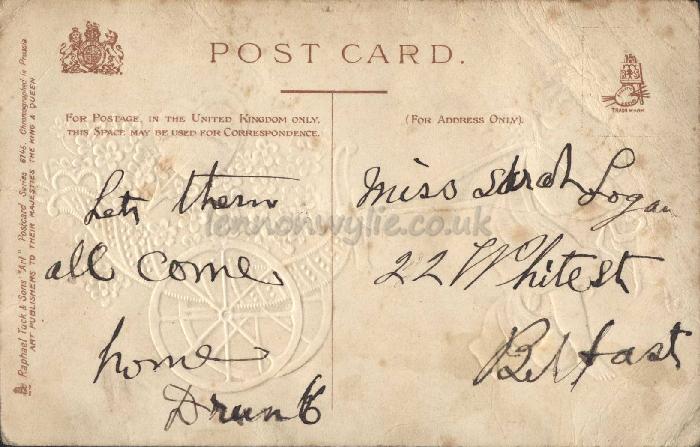 POST CARD.
FOR POSTAGE, IN THE UNITED KINGDOM ONLY,
THIS SPACE MAY BE USED FOR CORRESPONDENCE.
(FOR ADDRESS ONLY).
TRADE MARK
Raphael Tuck & Sons' "Art" Postcard Series 6746. Chromographed in Prussia
ART PUBLISHERS TO THEIR MAJESTIES THE KING & QUEEN
Lets them
all come
home
Drunk
Miss Sarah Logan
22 White st
Belfast
lennonwylie.co.uk